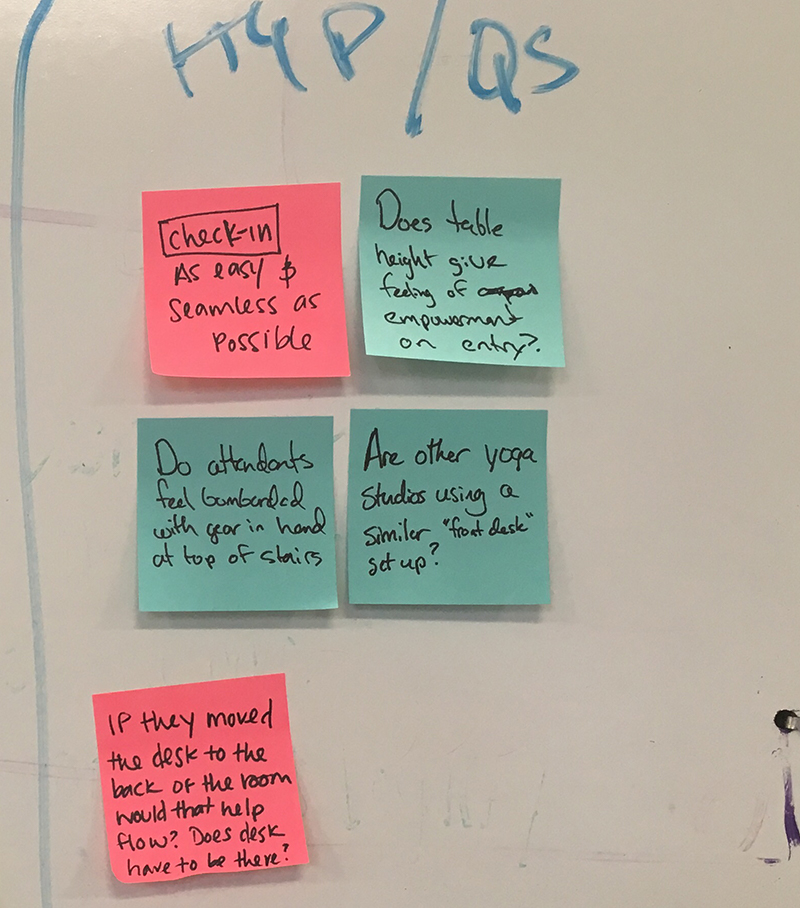 HYP/QS
check-in
As easy &
seamless as
possible
Does table
height give
feeling of
empowerment
on entry?.
Do attendants
feel bombarded
with gear in hand
at top of stairs
Are other yoga
studios using a
similar "front desk"
set up?
IF they moved
the desk to the
back of the room
would that help
flow? Does desk
have to be there?